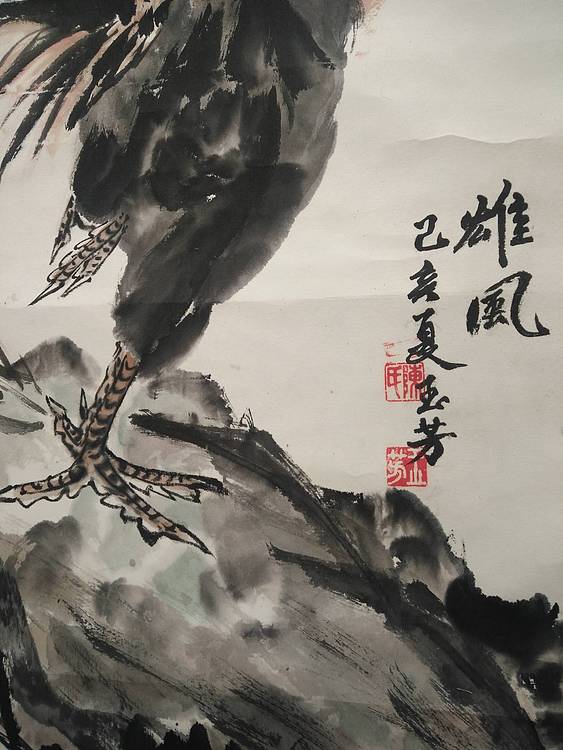 雄風
己亥夏玉芳
陳氏
玉芳